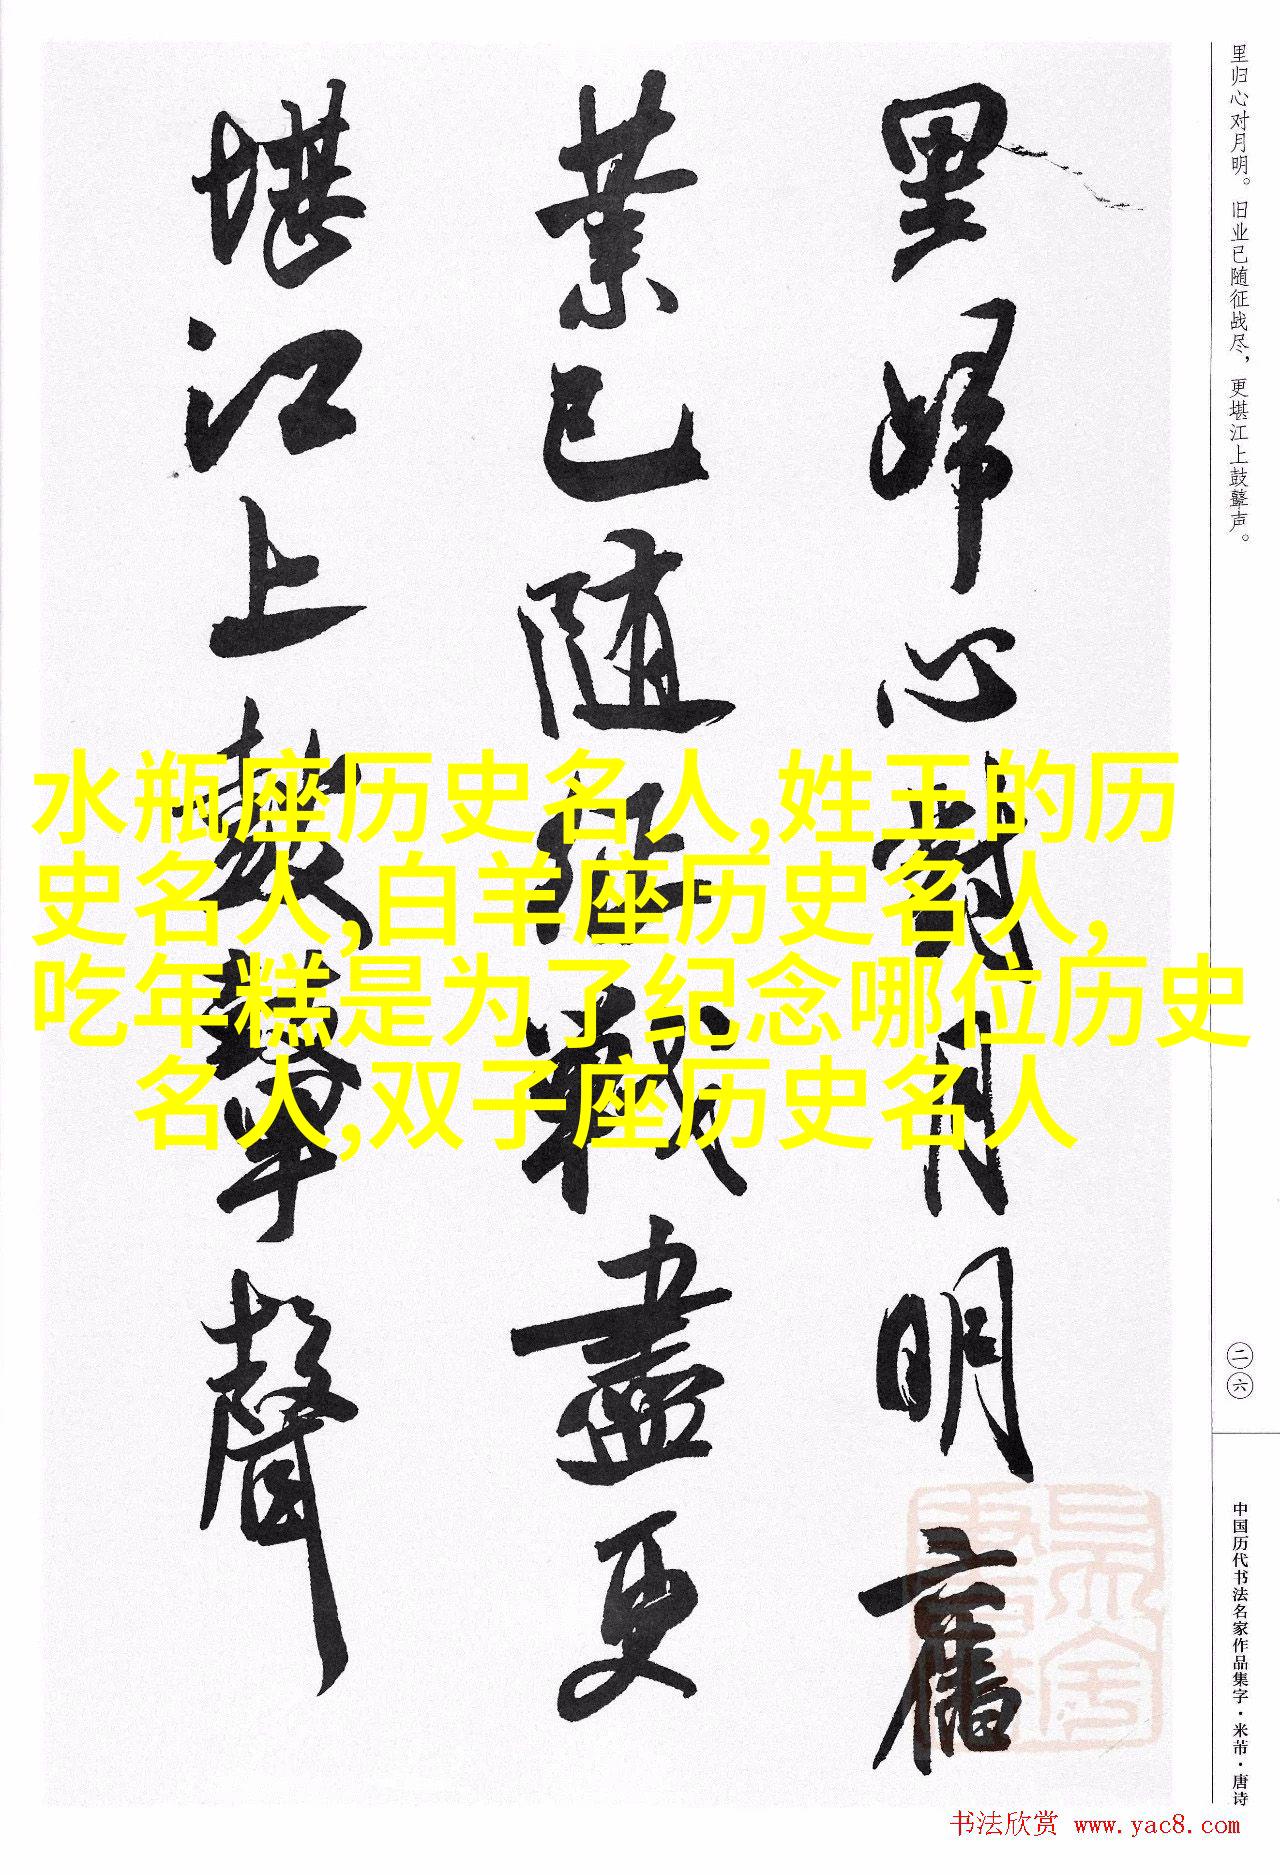 里归心对月明。旧业已随征战尽，更堪江上鼓鼙声。
里歸心對月明舊
業已隨征戰盡更
堪江上鼓鼙聲
水瓶座历史名人,姓王的历
史名人,白羊座历史名人,
吃年糕是为了纪念哪位历史
名人,双子座历史名人
二六
中国历代书法名家作品集字·米芾·唐诗
书法欣赏 www.yac8.com